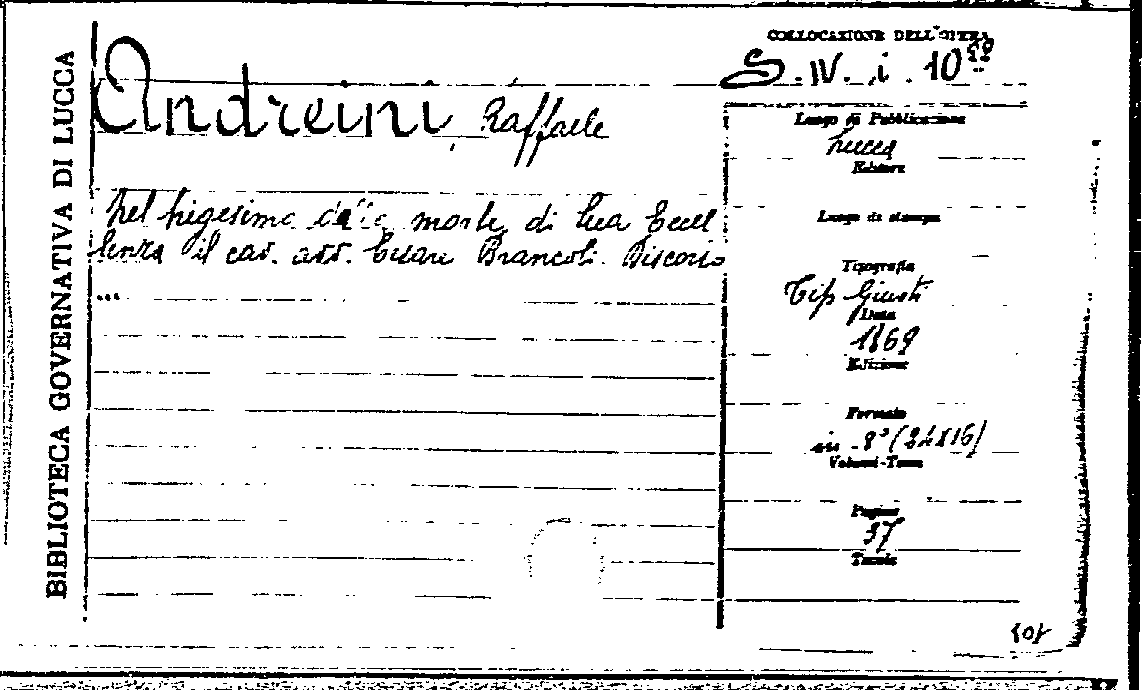 BIBLIOTECA GOVERNATIVA DI LUCCA
COLLOCAZIONE DELL'OPERA
S. IV. i. 10
Andreini, Raffaele
Luogo di Pubblicazione
Lucca
Editore
Nel trigesimo della morte di Sua Eccel
lenza il cav. avv. Cesare Brancoli. Discorso
...
Luogo di stampa
Tipografia
Tip Giusti
Data
1869
Edizione
Formato
in-8° (24x16)
Volumi-Tomo
Pagine
37
Tavole